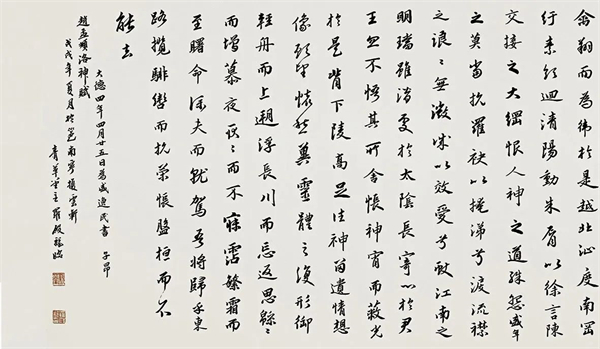 翔而為衛於是越北沚度南岡
紆素領迴清陽動朱脣以徐言陳
交接之大綱恨人神之道殊怨盛年
之莫當抗羅袂以掩涕兮淚流襟
之浪々無微誠以效愛兮獻江南之
明璫雖潛處於太陰長寄心於君
王忽不悟其所舍悵神宵而蔽光
於是背下陵高足往神留遺情想
像顧望懷愁冀靈體之復形御
輕舟而上遡浮長川而忘返思緜々
而增慕夜耿々而不寐霑繁霜而
至曙命僕夫而就駕吾將歸乎東
路攬騑轡而抗策悵盤桓而不
能去
大德四年四月廿五日為盛逸民書 子昂
趙孟頫洛神賦
戊戌年夏月於邕南寧
主羅臨